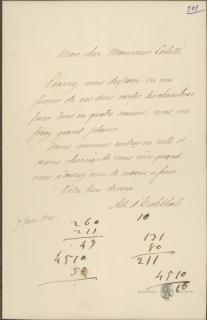 701
Mon cher Monsieur
Pouvez vous disposer en ma
faveur de vos deux cartes
pour trois ou quatre séances, vous me
ferez grand plaisir.
Nous sommes rentrés en ville et
serons charmés de vous voir quand
vous n'aurez rien de mieux à faire.
Votre bien dévoué
Ad. d'Eichthal
7
260
211
49
4510
10
131
80
211
4510